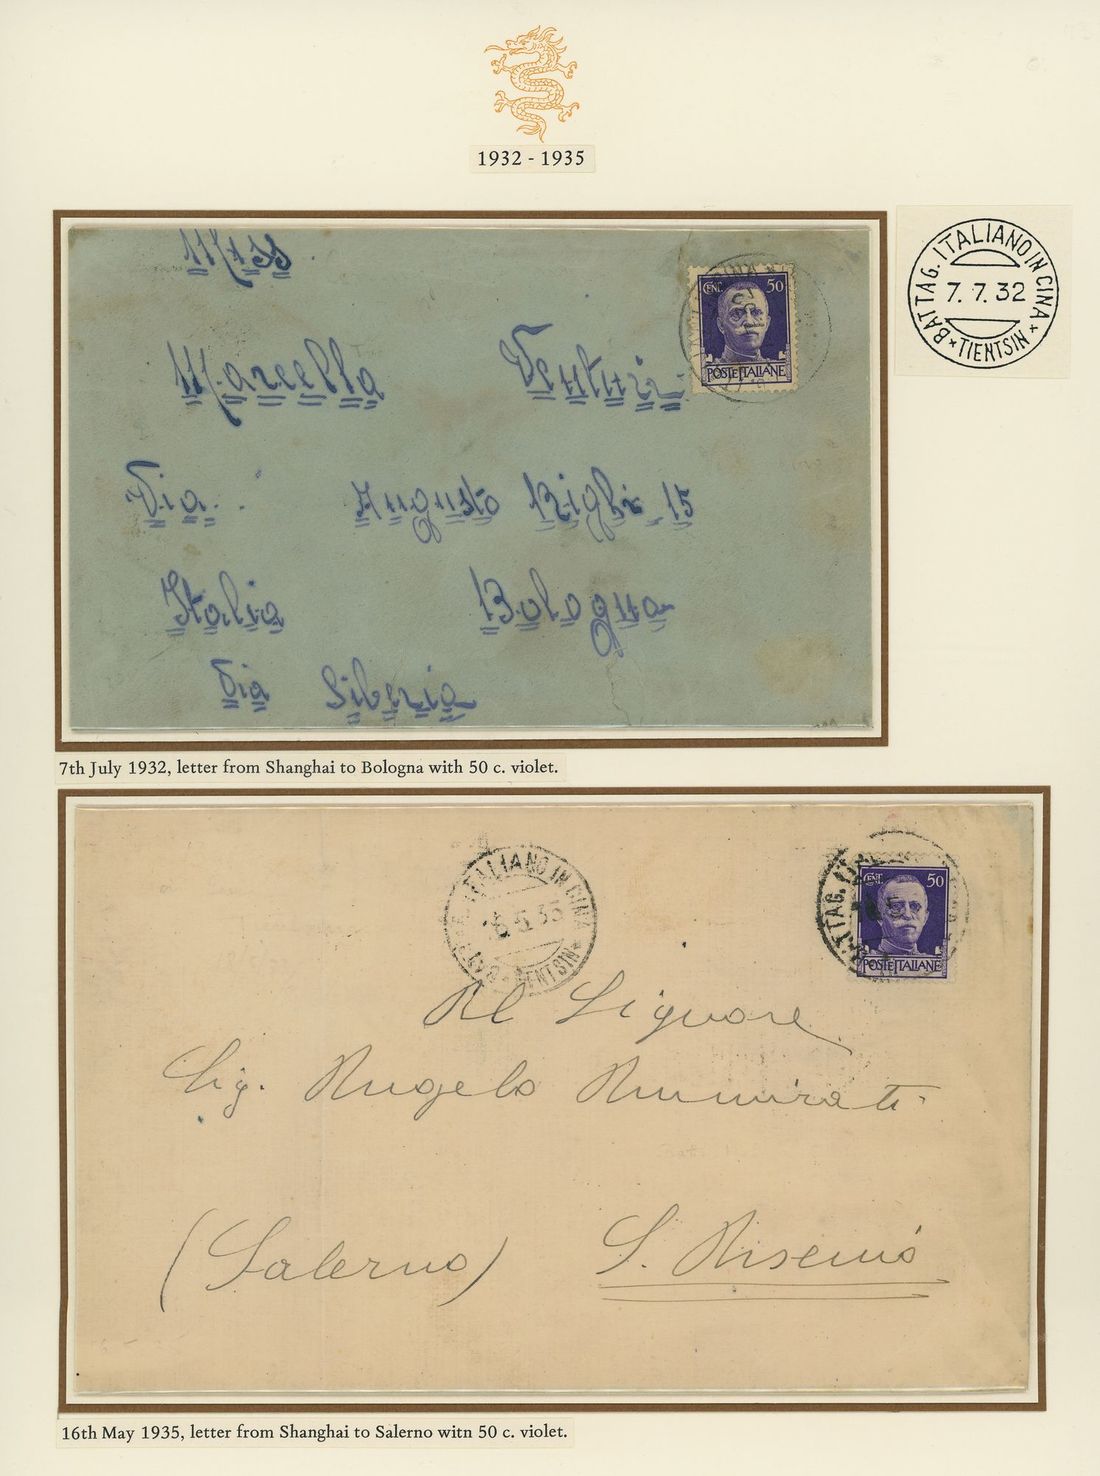 1932 - 1935
BATTAG. ITALIANO IN CINA
7. 7. 32
* TIENTSIN *
Miss
CENT. 50
POSTE ITALIANE
Marcella Venturi
Via Augusto Righi 15
Italia Bologna
Via Siberia
7th July 1932, letter from Shanghai to Bologna with 50 c. violet.
ITALIANO IN CINA
5 35
TIENTSIN *
BATTAG.
CENT. 50
POSTE ITALIANE
Al Signore
Sig. Angelo
(Salerno) S.
16th May 1935, letter from Shanghai to Salerno witn 50 c. violet.